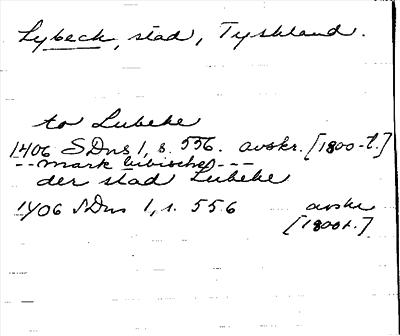 Lybeck, stad, Tyskland.
to Lubeke
1406 SDns 1, s. 556. avskr. [1800-t.]
-- mark lubische ---
der stad Lubeke
1406 SDns 1, s. 556 avskr
[1800t.]